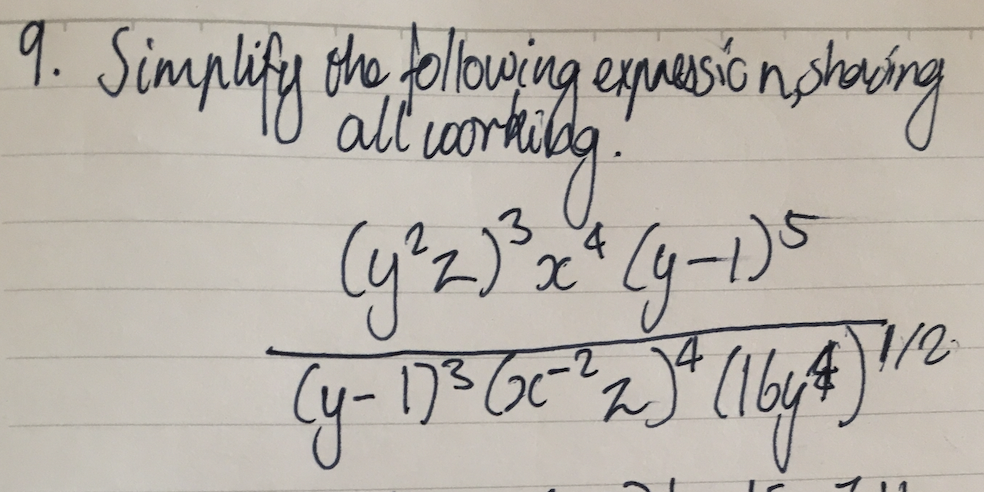 9. Simplify the following expression, showing
all working.
(y²z)³x⁴(y-1)⁵
(y-1)³(x⁻²z)⁴(16y⁴)^1/2